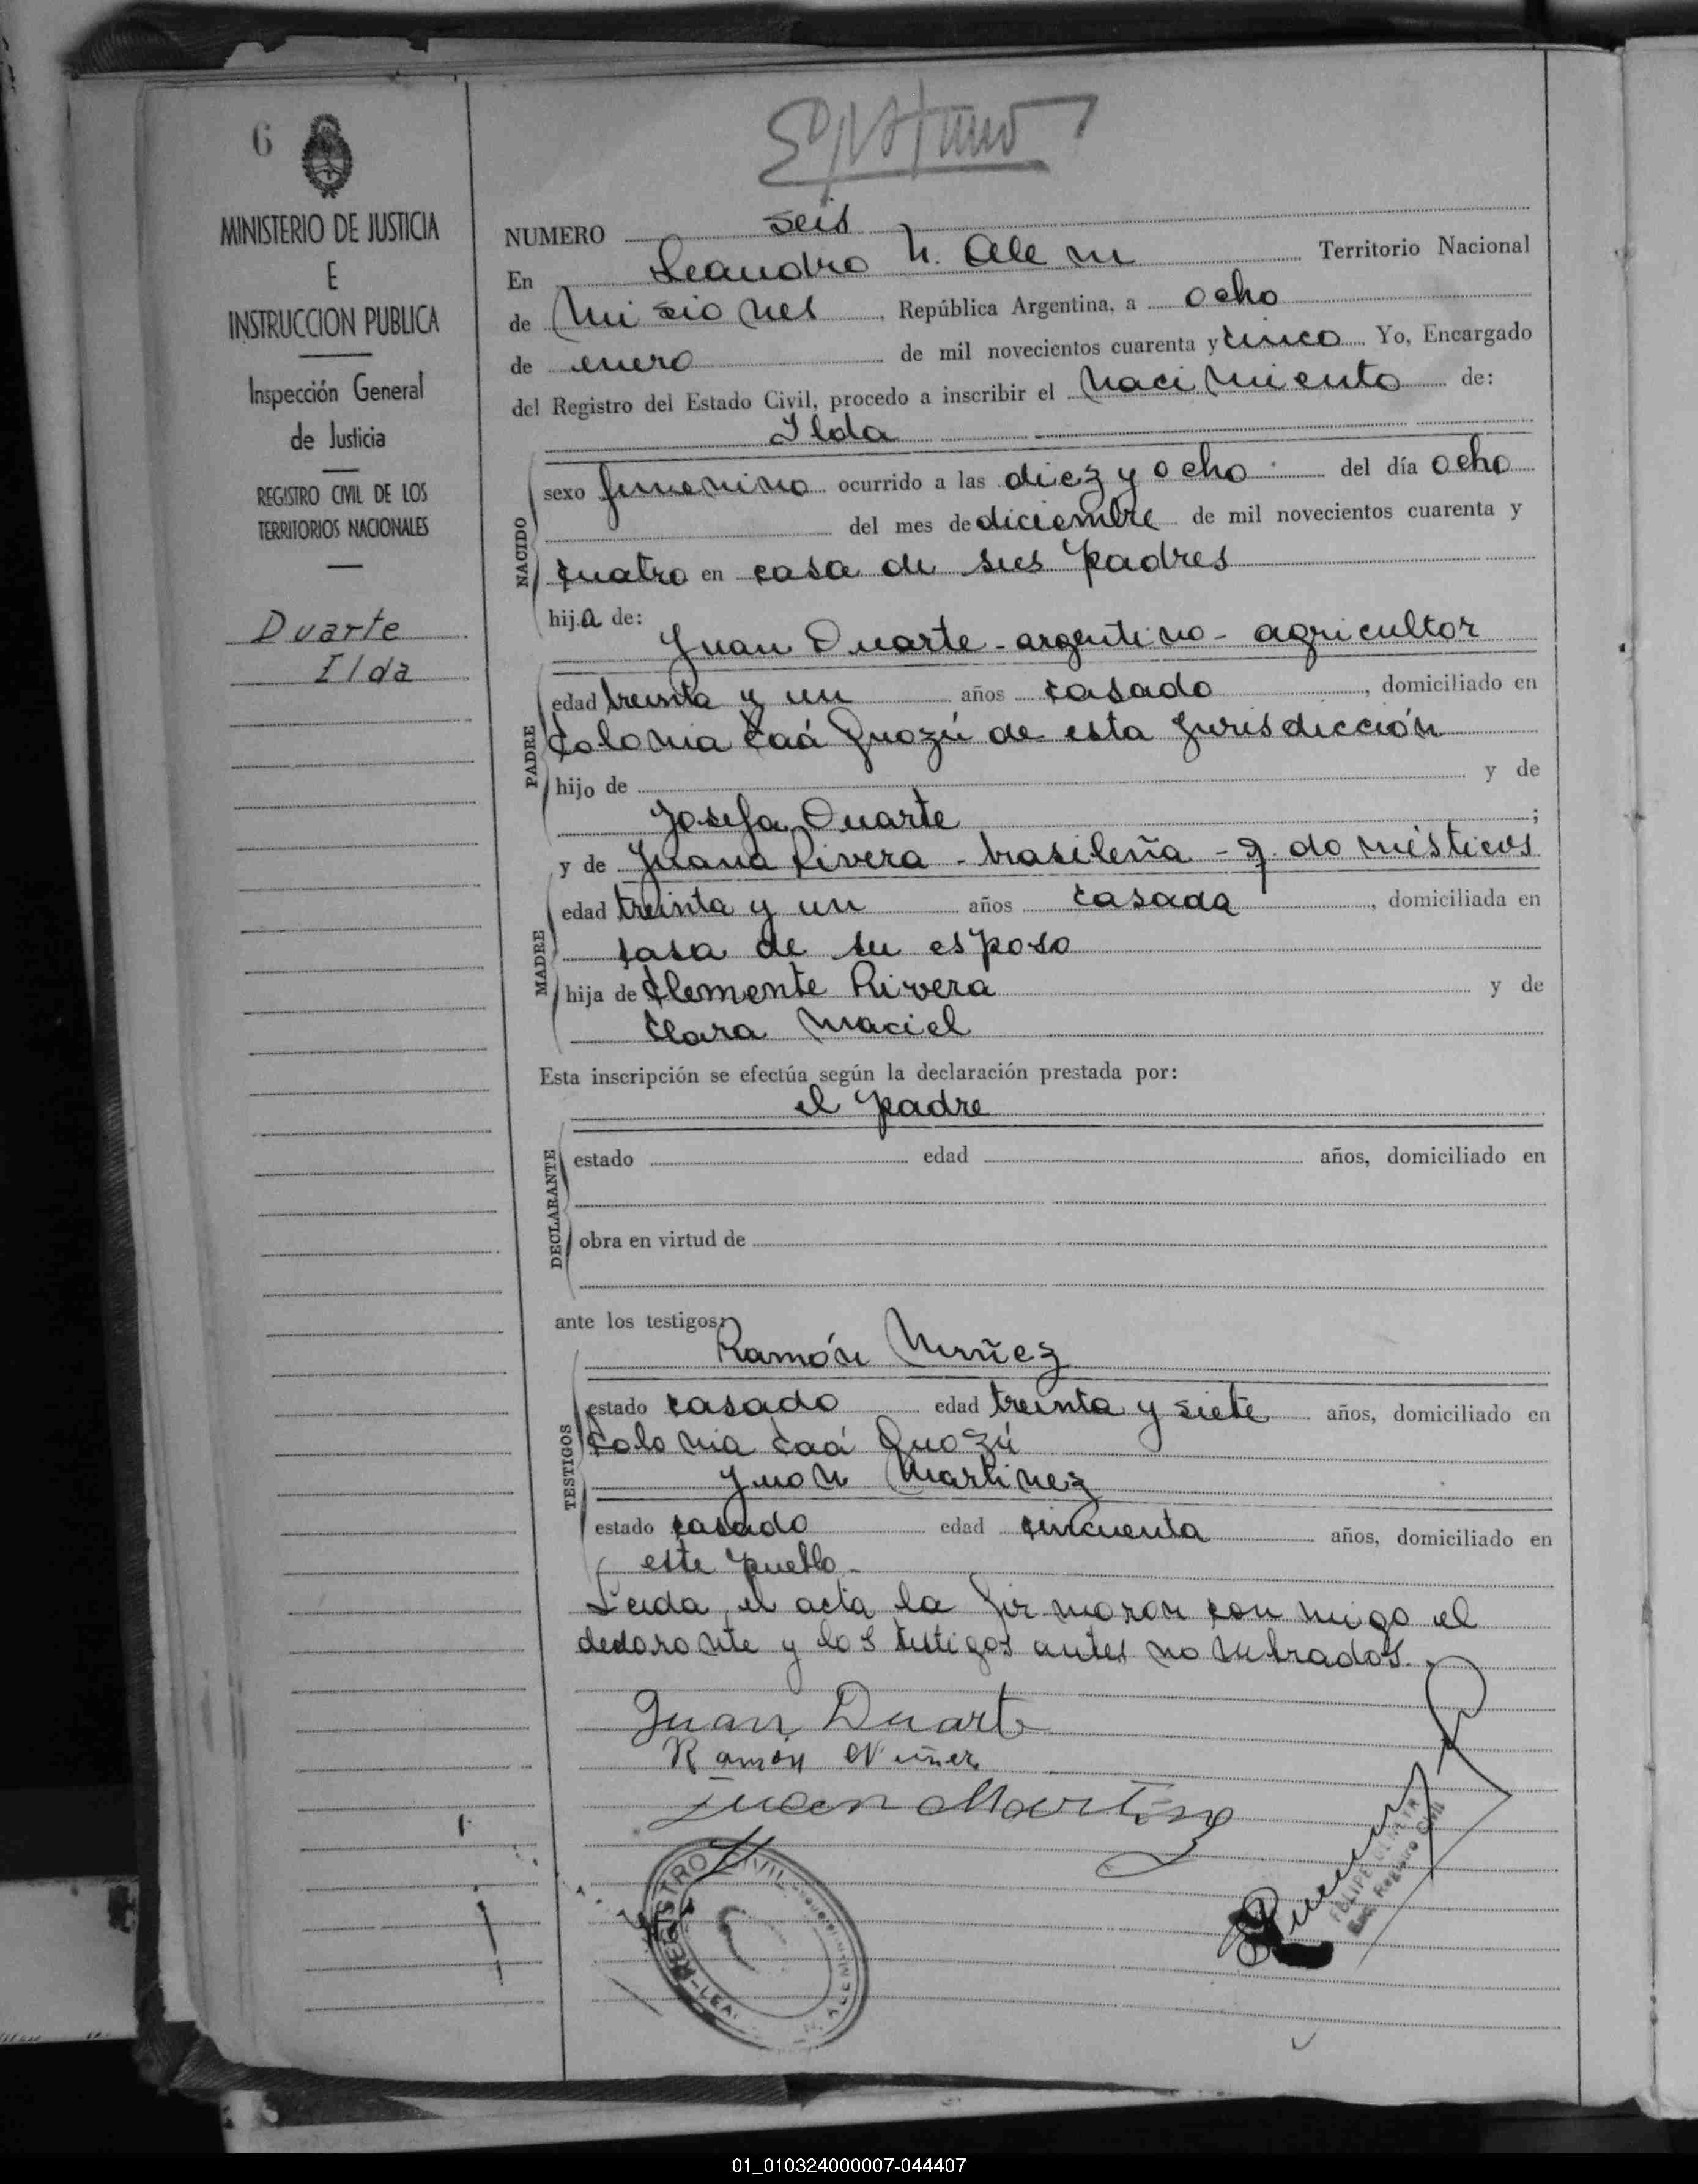 6
MINISTERIO DE JUSTICIA
E
INSTRUCCION PUBLICA
Inspección General
de Justicia
REGISTRO CIVIL DE LOS
TERRITORIOS NACIONALES
Duarte
Ilda
NUMERO seis
En Leandro N. Alem Territorio Nacional
de Misiones, República Argentina, a ocho
de enero de mil novecientos cuarenta y cinco Yo, Encargado
del Registro del Estado Civil, procedo a inscribir el nacimiento de:
Ilda
NACIDO
sexo femenino ocurrido a las diez y ocho del día ocho
del mes de diciembre de mil novecientos cuarenta y
cuatro en casa de sus padres
hija de:
Juan Duarte - argentino - agricultor
PADRE
edad treinta y un años casado, domiciliado en
Colonia Caá Guazú de esta Jurisdicción
hijo de y de
Josefa Duarte;
y de Juana Rivera - brasileña - q. domésticos
MADRE
edad treinta y un años casada, domiciliada en
casa de su esposo
hija de Clemente Rivera y de
Clara Maciel
Esta inscripción se efectúa según la declaración prestada por:
el padre
DECLARANTE
estado edad años, domiciliado en
obra en virtud de
ante los testigos:
Ramón Nuñez
TESTIGOS
estado casado edad treinta y siete años, domiciliado en
Colonia Caá Guazú
Juan Martinez
estado casado edad cincuenta años, domiciliado en
este pueblo.
Leida el acta la firmaron conmigo el
declarante y los testigos antes nombrados.
Juan Duarte
Ramón Nuñez
Juan Martinez
REGISTRO CIVIL
FELIPE
Enc. Registro Civil
01_010324000007-044407